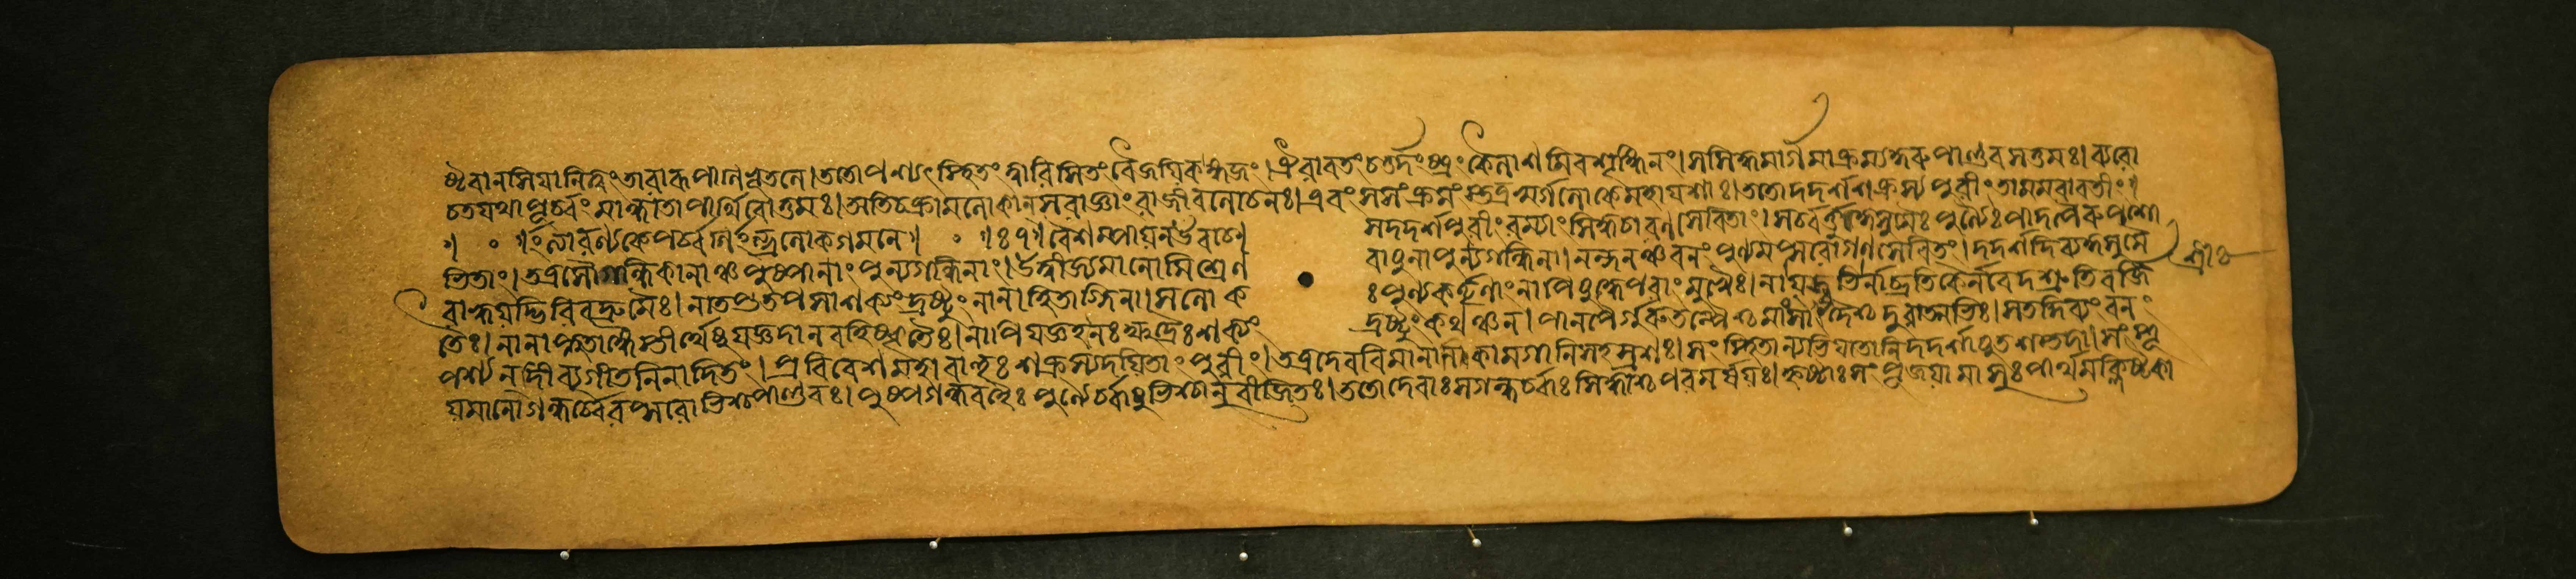 ষ্টবানসিযানিবিভোতাৰাৰূপাণিভূতলে।ততোপশ্যৎস্থিতংদ্বাৰিসিতংবৈজযিকঙ্গজং।ঐৰাবতংচতুর্দংষ্ট্রংকৈলাশমিবশৃঙ্গিনং।সসিদ্ধমার্গমাক্রম্যকুৰুপাণ্ডবসত্তমঃ।ব্যৰো
চতযথাপূর্ব্বংমান্ধাতাপার্থিবোত্তমঃ।অতিচক্রামলোকান্সৰাজ্ঞাংৰাজীবলোচনঃ।এবংসসংক্রমংস্তত্রস্বর্গলোকেমহাযশাঃ।ততোদদর্শশক্রস্যপুৰীংতামমৰাবতীং॥
॥ ০ ॥ইত্যাৰণ্যকেপর্ব্বণিইন্দ্রলোকগমনে॥ ০ ॥৪২॥বৈশম্পাযনউবাচ॥ সদদর্শপুৰীংৰম্যাংসিদ্ধচাৰণসেবিতাং।সর্ব্বর্ত্তুকুসুমৈঃপুণ্যৈঃপাদপৈৰুপশো
ভিতাং।তত্রসৌগন্ধিকানাঞ্চপুষ্পানাংপুন্যগন্ধিনাং।উদ্বীজ্যমানোমিশ্রেণ বাযুনাপুন্যগন্ধিনা।নন্দনঞ্চবনংপুণ্যমপ্সৰোগণসেবিতং।দদর্শদিব্যকুসুমৈ
ৰাহ্বযদ্ভিৰিবদ্রুমৈঃ।নাতপ্ততপসাশক্যংদ্রষ্টুংনানাহিতাগ্নিনা।সলোক ঃপুণ্যকর্তৃণাংনাপিযুদ্ধেপৰাংমুখৈঃ।নাযজ্বভির্নাব্রতিকৈর্নবেদশ্রুতিবর্জি
তৈঃ।নানাপ্লুতাঙ্গৈস্তীর্থেষুযজ্ঞদানবহিষ্কৃতৈঃ।নাপিযজ্ঞহনৈঃক্ষুদ্রৈঃশক্যং দ্রষ্টুংকথঞ্চন।পানপৈর্গুৰুতল্পৈশ্চমাংসাদৈশ্চদুৰাত্মভিঃ।সতদ্দিব্যংবনং
পশ্যন্দীব্যগীতনিনাদিতং।প্রবিবেশমহাবাহুঃশক্রস্যদযিতাংপুৰীং।তত্রদেববিমানানিকামগানিসহস্রশঃ।সংস্থিতান্যভিযাতানিদদর্শাযুতশস্তদা।সংস্তূ
যমানোগন্ধর্ব্বৈৰপ্সৰোভিশ্চপাণ্ডবঃ।পুষ্পগন্ধবহৈঃপুণ্যৈর্ব্বাযুভিশ্চানুবীজিতঃ।ততোদেবাঃসগন্ধর্ব্বাঃসিদ্ধাশ্চপৰমর্ষযঃ।হৃষ্টাঃসংপূজযামাসুঃপার্থমক্লিষ্টকা